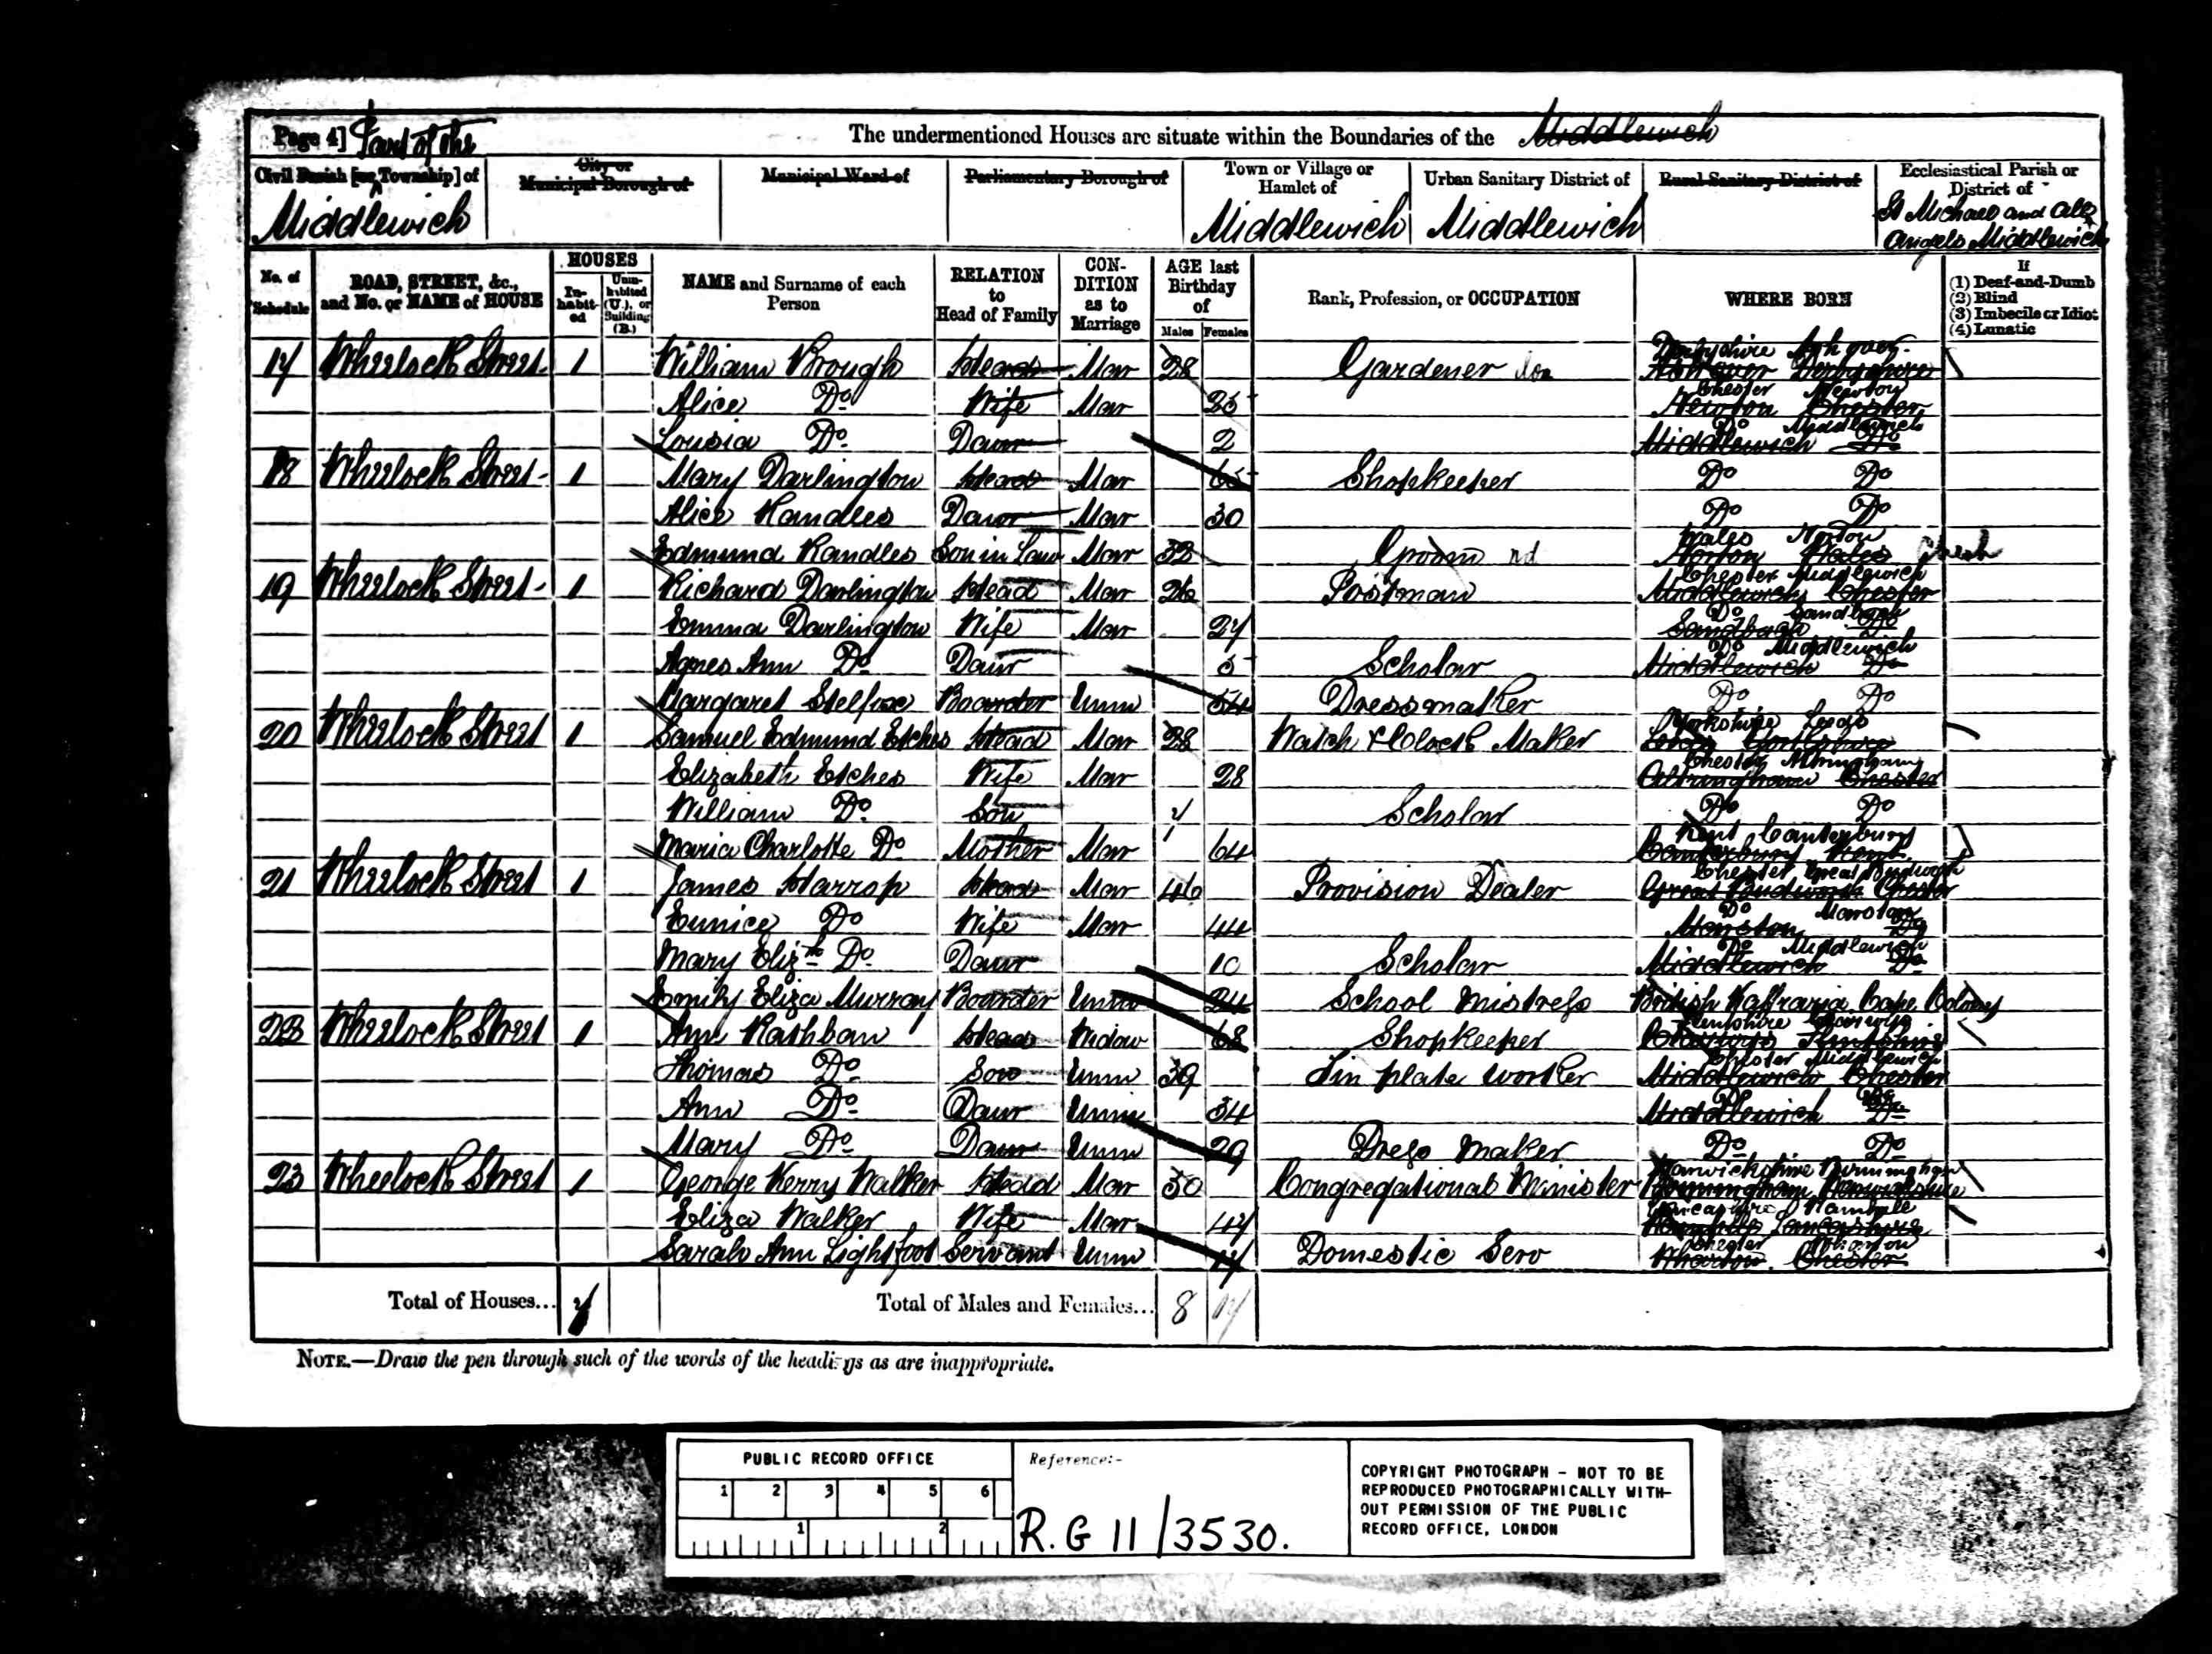 Page 4] Part of the The undermentioned Houses are situate within the Boundaries of the Middlewich
Civil Parish [or Township] of City or Municipal Borough of Municipal Ward of Parliamentary Borough of Town or Village or Hamlet of Urban Sanitary District of Rural Sanitary District of Ecclesiastical Parish or District of
Middlewich Middlewich Middlewich St Michael and All Angels Middlewich
No. of Schedule ROAD, STREET, &c., and No. or NAME of HOUSE HOUSES In-habit-ed Unin-habited (U.), or Building (B.) NAME and Surname of each Person RELATION to Head of Family CON-DITION as to Marriage AGE last Birthday of Males Females Rank, Profession, or OCCUPATION WHERE BORN If (1) Deaf-and-Dumb (2) Blind (3) Imbecile or Idiot (4) Lunatic
17 Wheelock Street 1 William Brough Head Mar 28 Gardener Derbyshire Ashover Ashover Derbyshire
Alice Do Wife Mar 25 Chester Newton Newton Chester
Lousia Do Daur 2 Do Middlewich Middlewich Do
18 Wheelock Street 1 Mary Darlington Head Mar 65 Shopkeeper Do Do
Alice Randles Daur Mar 30 Do Do
Edmund Randles Son in Law Mar 32 Groom nd Wales Norton Norton Wales
19 Wheelock Street 1 Richard Darlington Head Mar 26 Postman Chester Middlewich Middlewich Chester
Emma Darlington Wife Mar 27 Do Sandbach Sandbach Do
Agnes Ann Do Daur 5 Scholar Do Middlewich Middlewich Do
Margaret Stelfox Boarder Unm 54 Dressmaker Do Do
20 Wheelock Street 1 Samuel Edmund Etches Head Mar 28 Watch & Clock Maker Yorkshire Leeds Leeds Yorkshire
Elizabeth Etches Wife Mar 28 Chester Altringham Altringham Chester
William Do Son 7 Scholar Do Do
Maria Charlotte Do Mother Mar 64 Kent Canterbury Canterbury Kent
21 Wheelock Street 1 James Harrop Head Mar 46 Provision Dealer Chester Great Budworth Great Budworth Chester
Eunice Do Wife Mar 44 Do Marston Marston Do
Mary Elizth Do Daur 10 Scholar Do Middlewich Middlewich Do
Emily Eliza Murray Boarder Unm 24 School Mistress British Kaffraria Cape Colony
22 Wheelock Street 1 Ann Rathban Head Widow 68 Shopkeeper
Thomas Do Son Unm 39 Tin plate worker Chester Middlewich Middlewich Chester
Ann Do Daur Unm 34 Do Do Middlewich Do
Mary Do Daur Unm 29 Dress Maker Do Do
23 Wheelock Street 1 George Kerry Walker Head Mar 50 Congregational Minister Warwickshire Birmingham Birmingham Warwickshire
Eliza Walker Wife Mar 47 Lancashire Lancashire
Sarah Ann Lightfoot Servant Unm 17 Domestic Serv Chester Wharton Wharton Chester
Total of Houses... 7 Total of Males and Females... 8 17
NOTE.—Draw the pen through such of the words of the headings as are inappropriate.
PUBLIC RECORD OFFICE
1 2 3 4 5 6
1 2
Reference:-
R.G 11/3530.
COPYRIGHT PHOTOGRAPH - NOT TO BE
REPRODUCED PHOTOGRAPHICALLY WITH-
OUT PERMISSION OF THE PUBLIC
RECORD OFFICE, LONDON